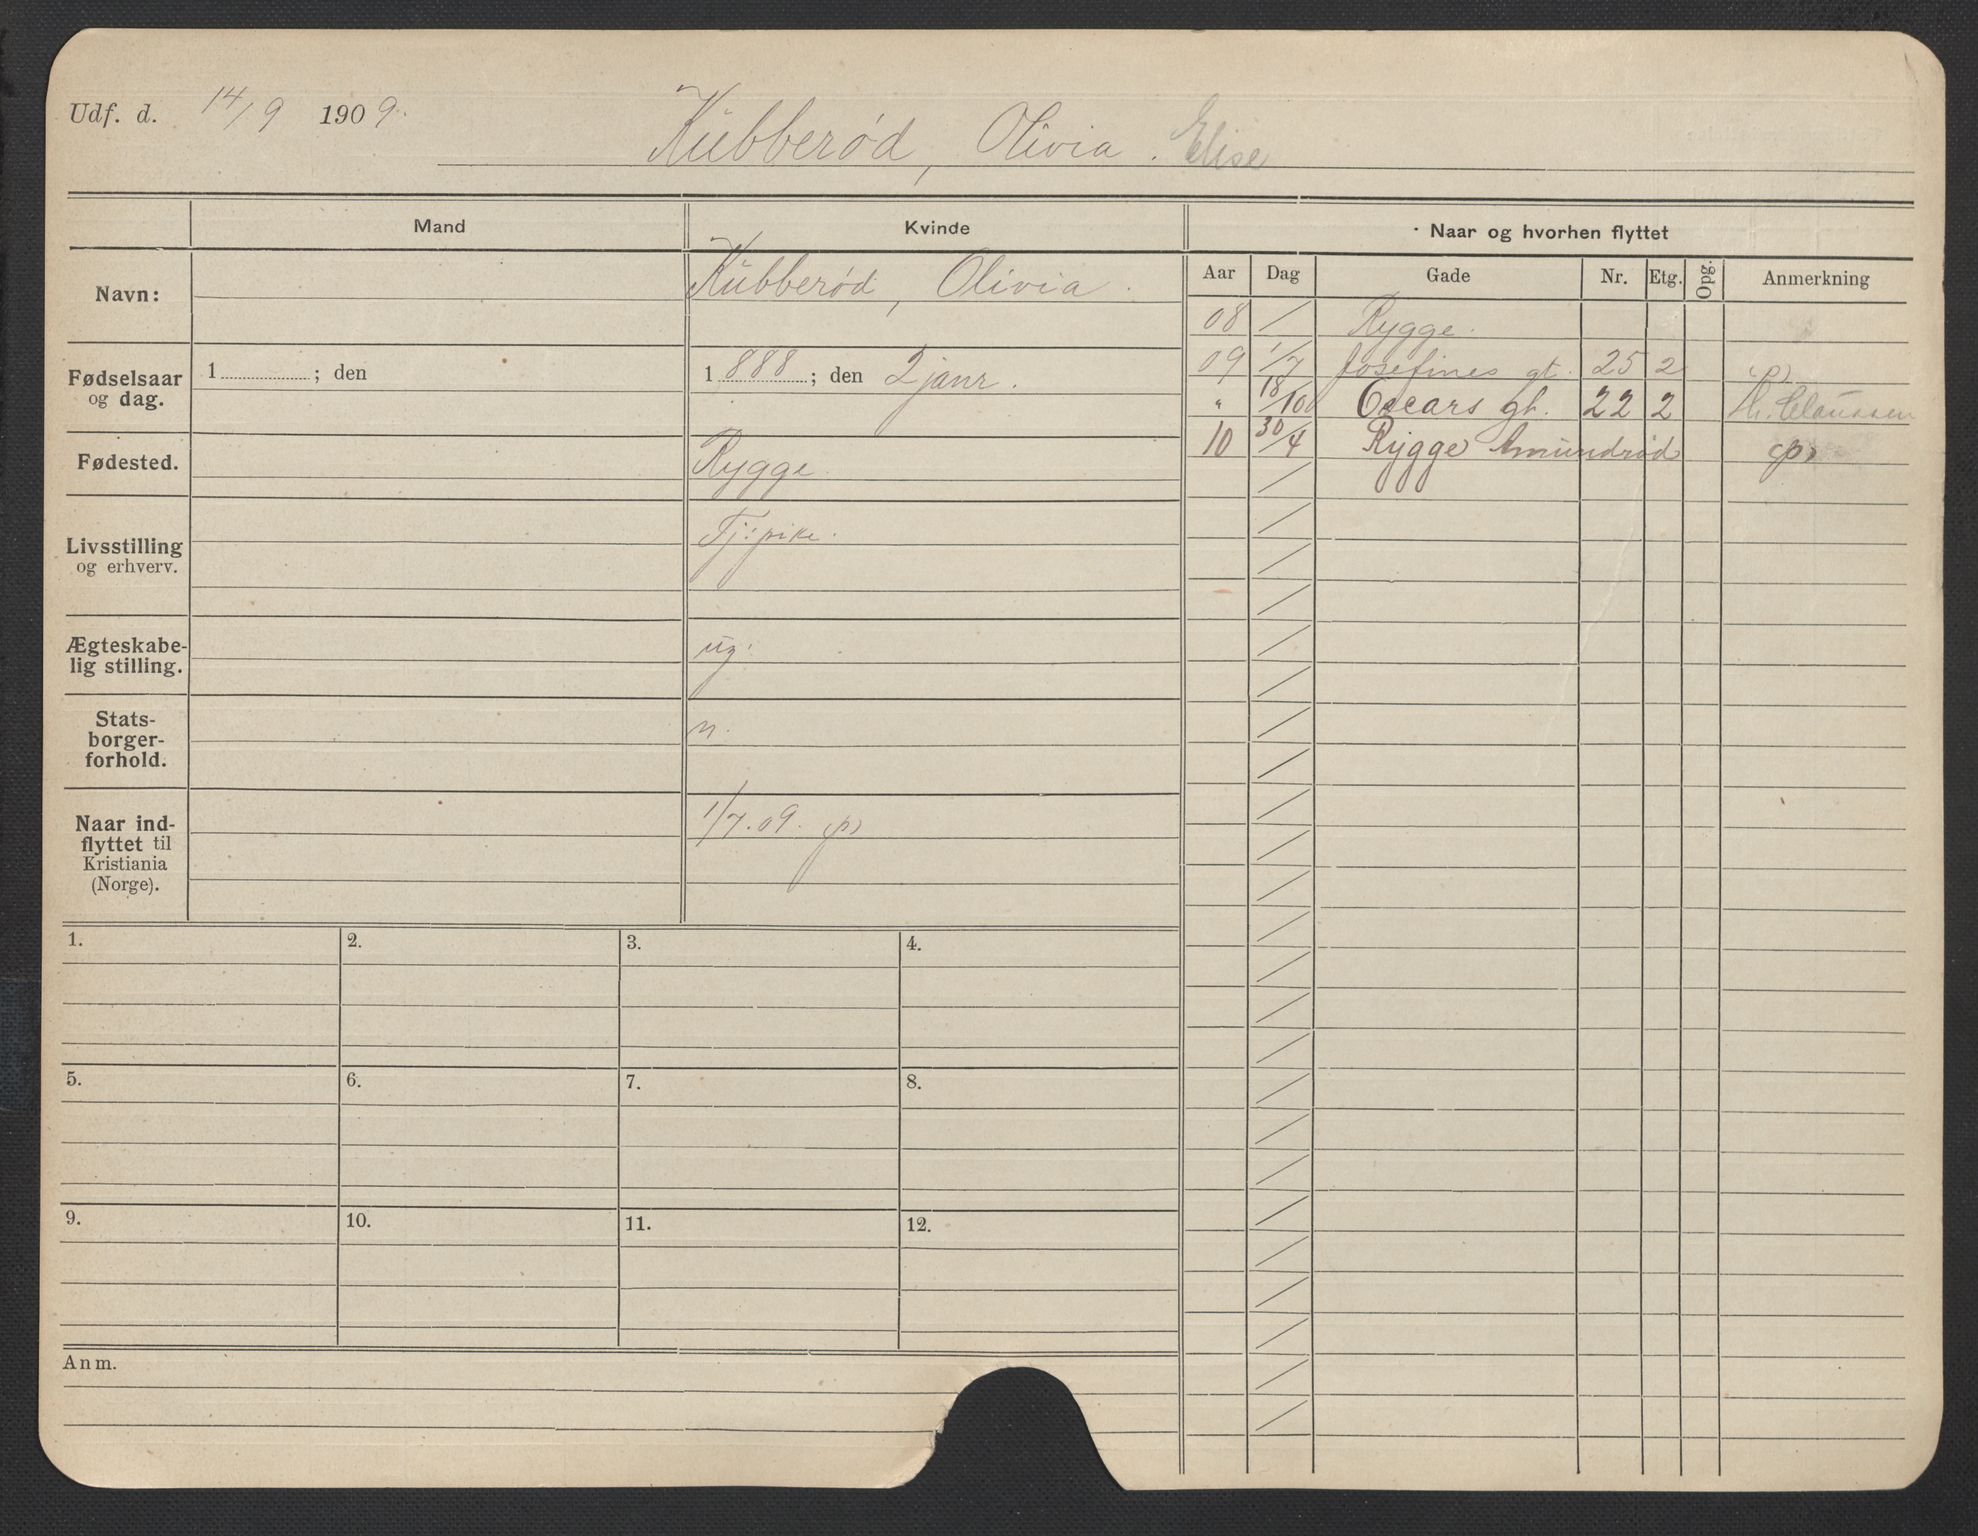 Udf. d. 14/9 1909.
Kubberød, Olivia. Elise
Mand
Kvinde
Naar og hvorhen flyttet
Navn:
Kubberød, Olivia.
Aar Dag Gade Nr. Etg. Opg. Anmerkning
08 / Rygge.
09 1/7 Josefines gt. 25 2 (p)
" 18/10 Oscars gt. 22 2 Th. Claussen
10 30/4 Rygge Amundrød (p)
Fødselsaar
og dag.
1 ; den
1888 ; den 2 janr.
Fødested.
Rygge
Livsstilling
og erhverv.
Tj: pike.
Ægteskabe-
lig stilling.
ug.
Stats-
borger-
forhold.
n.
Naar ind-
flyttet til
Kristiania
(Norge).
1/7.09. (p)
1. 2. 3. 4.
5. 6. 7. 8.
9. 10. 11. 12.
Anm.